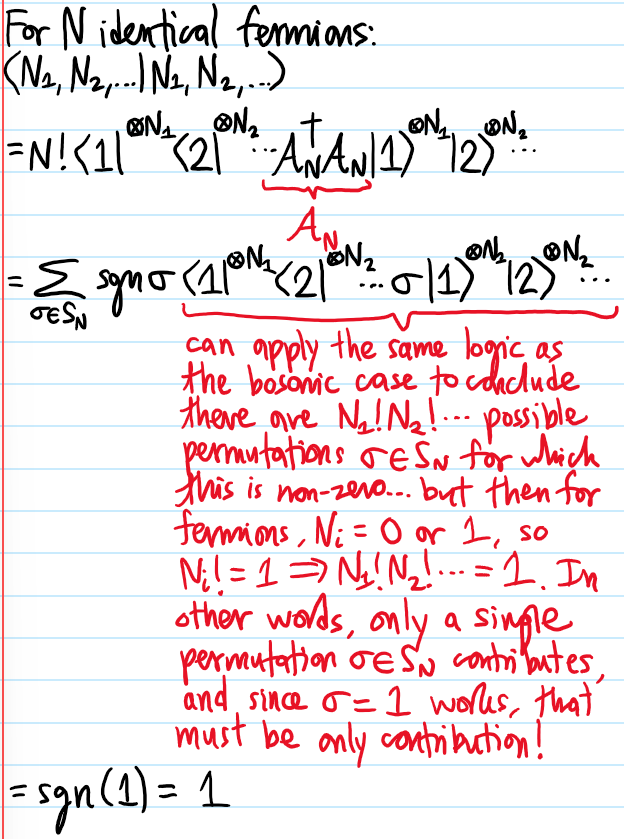 For N identical fermions:
⟨N₁, N₂, ...|N₁, N₂, ...⟩
= N!⟨1|^⊗N₁⟨2|^⊗N₂ ... A_N†A_N|1⟩^⊗N₁|2⟩^⊗N₂ ...
A_N
= Σ_{σ∈S_N} sgn σ ⟨1|^⊗N₁⟨2|^⊗N₂ ... σ|1⟩^⊗N₁|2⟩^⊗N₂ ...
can apply the same logic as
the bosonic case to conclude
there are N₁!N₂!... possible
permutations σ∈S_N for which
this is non-zero... but then for
fermions, Nᵢ = 0 or 1, so
Nᵢ! = 1 ⇒ N₁!N₂!... = 1. In
other words, only a single
permutation σ∈S_N contributes,
and since σ = 1 works, that
must be only contribution!
= sgn(1) = 1